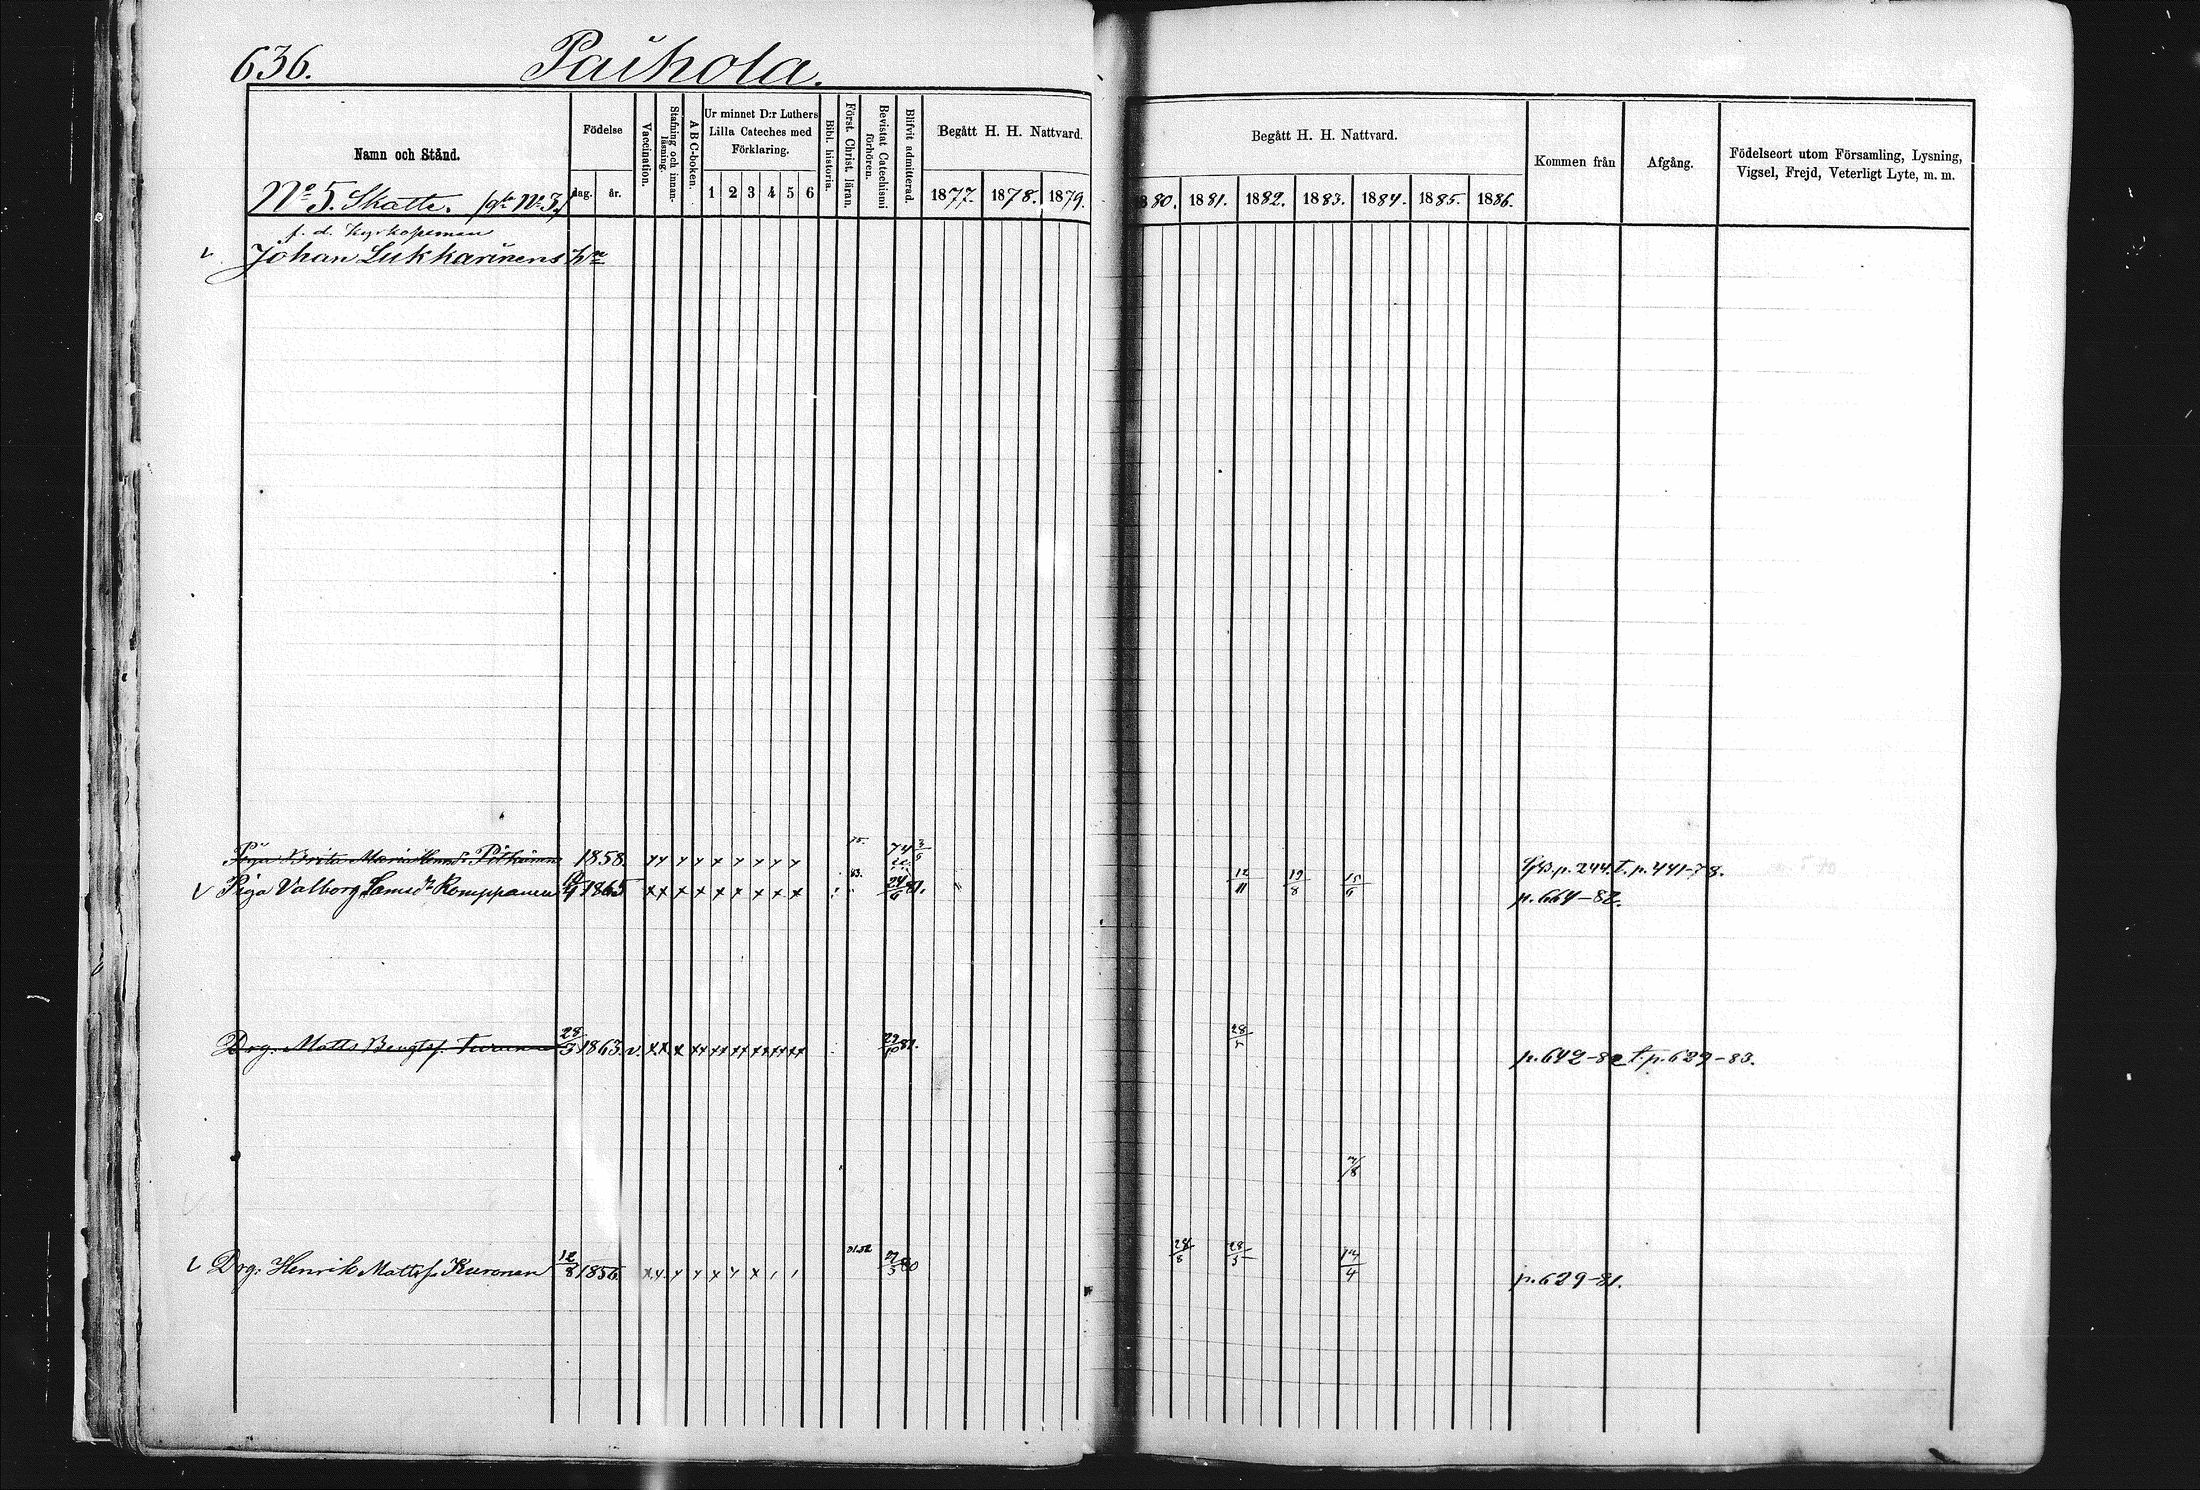 636. Paihola.
Namn och Stånd.
Födelse
dag. år.
Vaccination.
Stafning och innan-läsning.
A B C-boken.
Ur minnet D:r Luthers Lilla Cateches med Förklaring.
1 2 3 4 5 6
Bibl. historia.
Först. Christ. läran.
Bevistat Catechismi förhören.
Blifvit admitterad.
Begått H. H. Nattvard.
1877. 1878. 1879.
Begått H. H. Nattvard.
1880. 1881. 1882. 1883. 1884. 1885. 1886.
Kommen från
Afgång.
Födelseort utom Församling, Lysning, Vigsel, Frejd, Veterligt Lyte, m. m.
No 5. Skatte.
f. d. Kyrkoheman
Johan Lukkarinens
Piga Brita Maria 1858. 74 p. 244. t. p. 441-78.
Piga Valborg Romppanen 1865 83. 24/6 81. 12/11 19/8 15/6 p. 664-82.
Drg. Matts Bengtsf. Turunen 28/3 1863. v. 28/5 p. 642-82 t. p. 629-83.
Drg. Henrik Mattsf. Kuronen 12/8 1856. 81.82 80 28/8 28/5 14/4 p. 629-81.